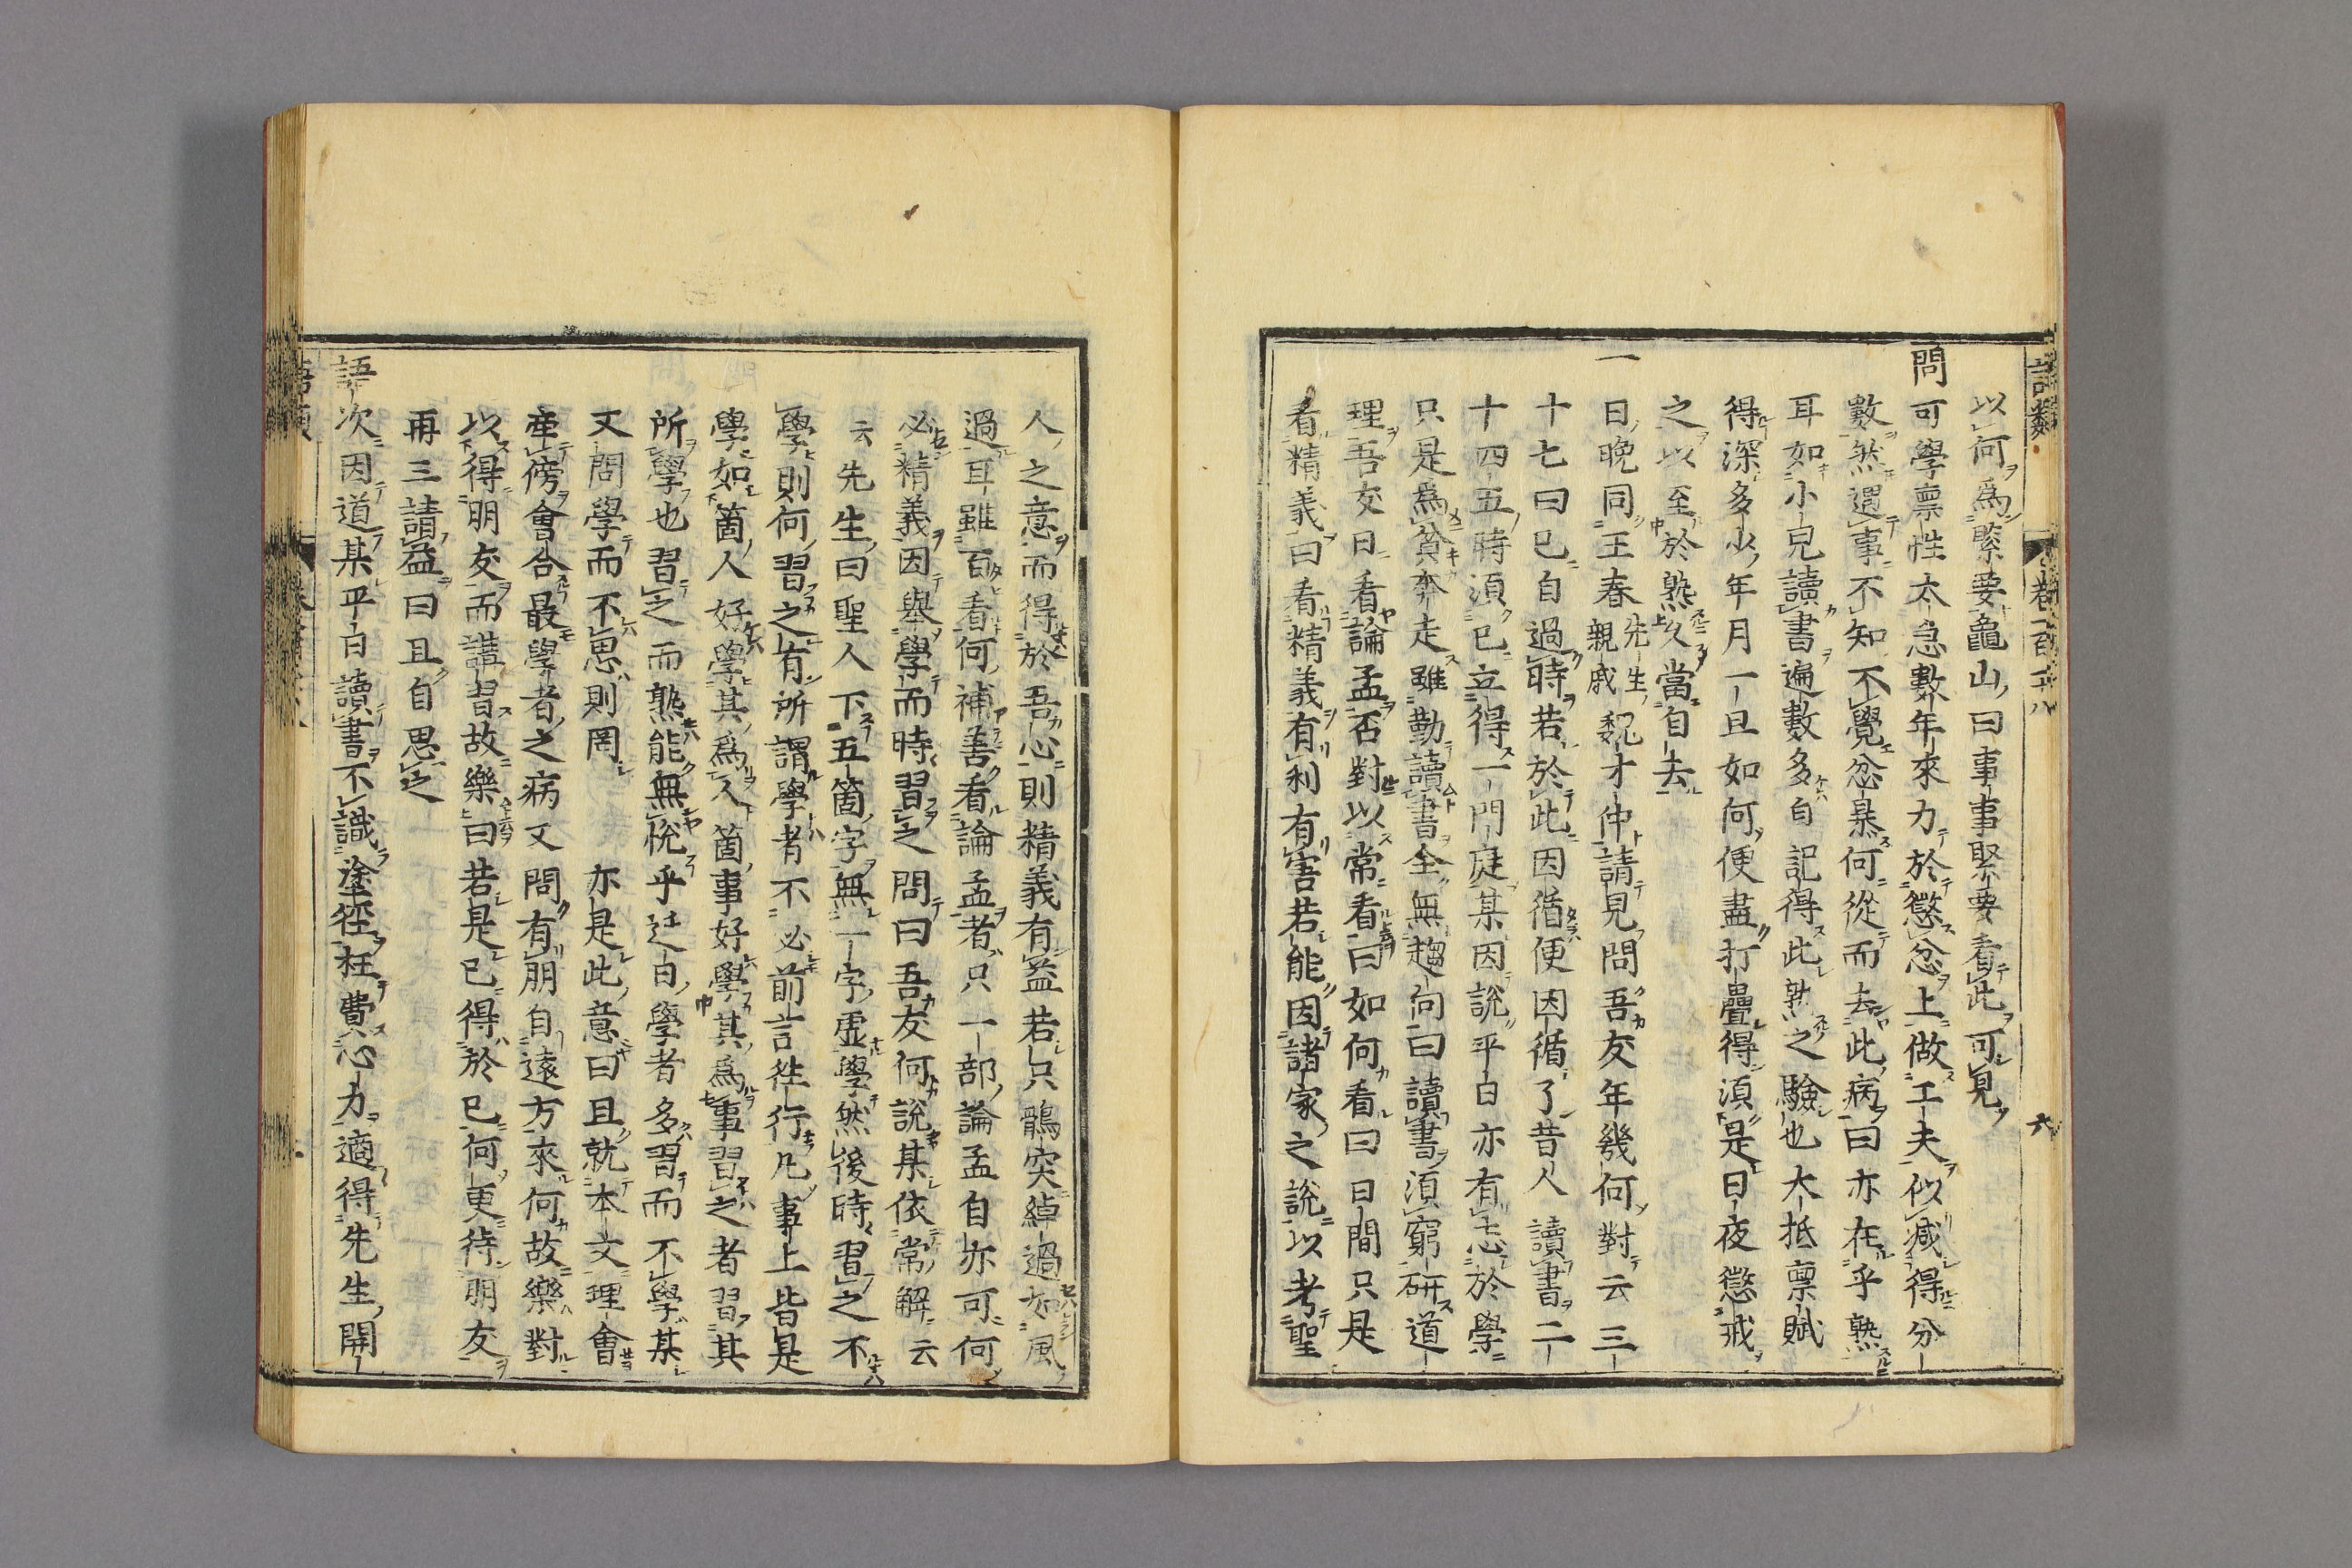 語類 卷百十八 六
以何爲緊要龜山曰事事緊要看此可見
問可學稟性太急數年來力於懲忿上做工夫似減得分
數然遇事不知不覺忿暴何從而去此病曰亦在乎熟
耳如小兒讀書遍數多自記得此熟之驗也大抵稟賦
得深多少年月一旦如何便盡打疊得須是日夜懲戒
之以至於熟久當自去
一日晩同王春先生親戚魏才仲請見問吾友年幾何對云三
十七曰已自過時若於此因循便因循了昔人讀書二
十四五時須已立得一門庭某因說平白亦有志於學
只是爲貧奔走雖勤讀書全無趨向曰讀書須窮研道
理吾友日看論孟否對以常看曰如何看曰日間只是
看精義曰看精義有利有害若能因諸家之說以考聖
人之意而得於吾心則精義有益若只鶻突綽過如風
過耳雖百看何補善看論孟者只一部論孟自亦可何
必精義因舉學而時習之問曰吾友何說某依常解云
云先生曰聖人下五箇字無一字虛學然後時習之不
學則何習之有所謂學者不必前言徃行凡事上皆是
學如箇人好學其爲人箇事好學其爲事習之者習其
所學也習之而熟能無悅乎近日學者多習而不學某
又問學而不思則罔 亦是此意曰且就本文理會
牽傍會合最學者之病又問有朋自遠方來何故樂對
以得朋友而講習故樂曰若是已得於已何更待朋友
再三請益曰且自思之
語次因道某平白讀書不識塗徑枉費心力適得先生開